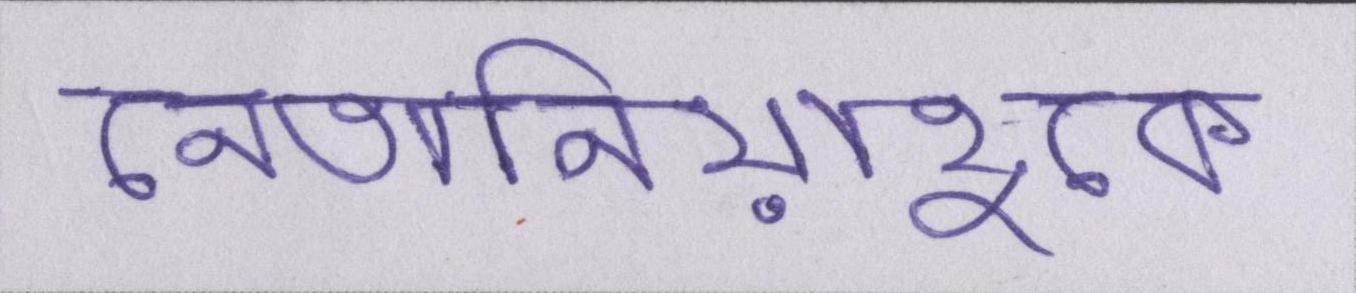 নেতানিয়াহুকে